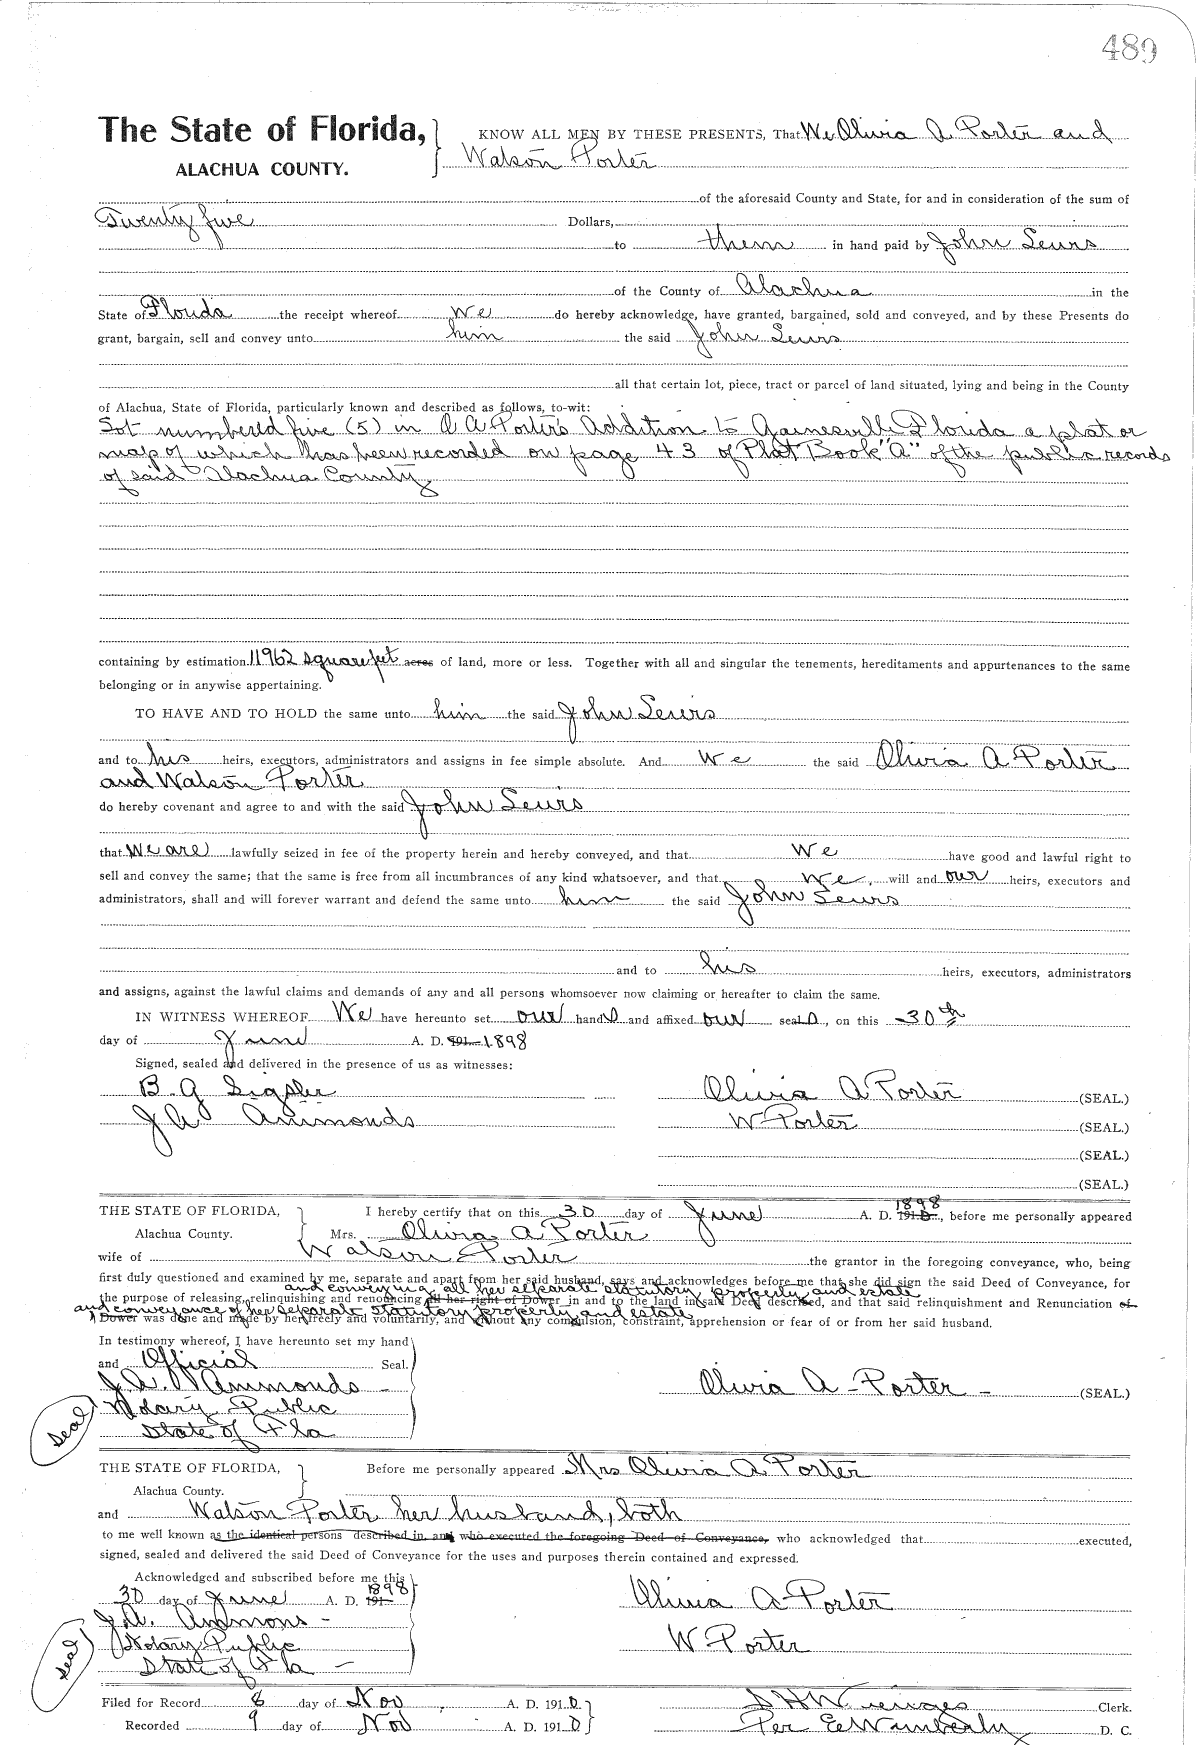 489
The State of Florida, KNOW ALL MEN BY THESE PRESENTS, That We Olivia A Porter and
ALACHUA COUNTY. Watson Porter
of the aforesaid County and State, for and in consideration of the sum of
Twenty five Dollars,
to them in hand paid by John
of the County of Alachua in the
State of Florida the receipt whereof we do hereby acknowledge, have granted, bargained, sold and conveyed, and by these Presents do
grant, bargain, sell and convey unto him the said John
all that certain lot, piece, tract or parcel of land situated, lying and being in the County
of Alachua, State of Florida, particularly known and described as follows, to-wit:
Lot numbered five (5) in O A Porter's Addition to Gainesville Florida a plat or
map of which has been recorded on page 43 of Plat Book "A" of the public records
of said Alachua County
containing by estimation 11962 square feet acres of land, more or less. Together with all and singular the tenements, hereditaments and appurtenances to the same
belonging or in anywise appertaining.
TO HAVE AND TO HOLD the same unto him the said John
and to his heirs, executors, administrators and assigns in fee simple absolute. And we the said Olivia A Porter
and Watson Porter
do hereby covenant and agree to and with the said John
that we are lawfully seized in fee of the property herein and hereby conveyed, and that we have good and lawful right to
sell and convey the same; that the same is free from all incumbrances of any kind whatsoever, and that we, will and our heirs, executors and
administrators, shall and will forever warrant and defend the same unto him the said John
and to his heirs, executors, administrators
and assigns, against the lawful claims and demands of any and all persons whomsoever now claiming or hereafter to claim the same.
IN WITNESS WHEREOF We have hereunto set our hands and affixed our seals, on this 30th
day of June A. D. 191 1898
Signed, sealed and delivered in the presence of us as witnesses:
B. G Olivia A Porter (SEAL.)
J A Ammonds W Porter (SEAL.)
(SEAL.)
(SEAL.)
THE STATE OF FLORIDA, I hereby certify that on this 30 day of June A. D. 191 1898, before me personally appeared
Alachua County. Mrs. Olivia A Porter
wife of Watson Porter the grantor in the foregoing conveyance, who, being
first duly questioned and examined by me, separate and apart from her said husband, says and acknowledges before me that she did sign the said Deed of Conveyance, for
and conveying all her separate statutory property and estate
the purpose of releasing, relinquishing and renouncing all her right of Dower in and to the land in said Deed described, and that said relinquishment and Renunciation of
and conveyance of her separate statutory property and estate
Dower was done and made by her freely and voluntarily, and without any compulsion, constraint, apprehension or fear of or from her said husband.
In testimony whereof, I have hereunto set my hand
and Official Seal.
J. A. Ammonds - Olivia A - Porter - (SEAL.)
Seal Notary Public
State of Fla
THE STATE OF FLORIDA, Before me personally appeared Mrs Olivia A Porter
Alachua County.
and Watson Porter her husband, both
to me well known as the identical persons described in, and who executed the foregoing Deed of Conveyance, who acknowledged that executed,
signed, sealed and delivered the said Deed of Conveyance for the uses and purposes therein contained and expressed.
Acknowledged and subscribed before me this
30 day of June A. D. 191 1898 Olivia A Porter
J. A. Ammons -
Seal Notary Public W Porter
State of Fla -
Filed for Record 8 day of Nov, A. D. 1910 Clerk.
Recorded 9 day of Nov A. D. 1910 Per D. C.